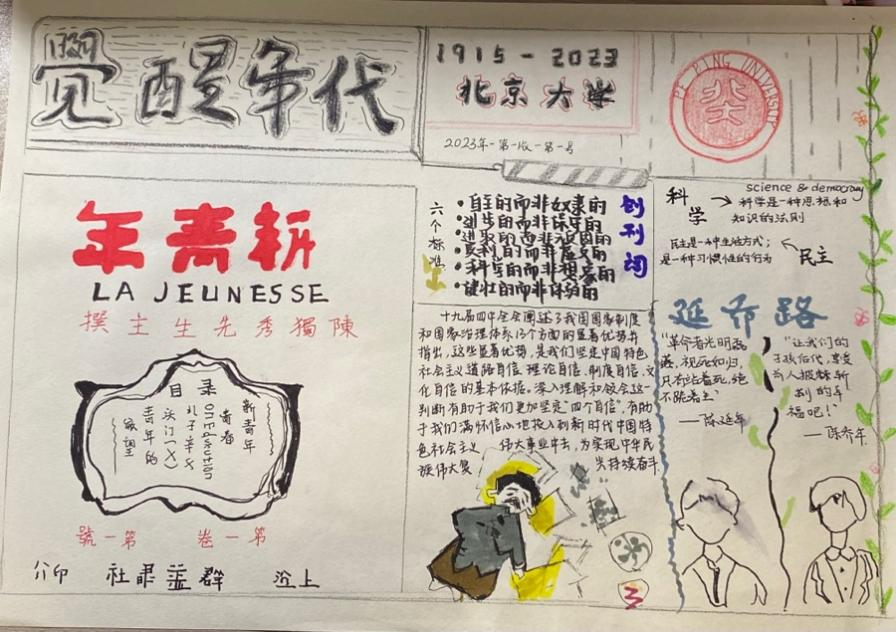 觉醒年代
1915-2023
北京大学
2023年-第一版-第一号
PE PING UNIVERSITY
北大
年青新
LA JEUNESSE
撰主生先秀獨陳
目 录
新青年
青春
孔子平议
青年的
號一第 卷一第
印 社 益群 上
创刊词
六个标准
·自主的而非奴隶的
·进步的而非保守的
·进取的而非退隐的
·科学的而非想象的
science & democracy
科学
科学是一种思想和
知识的法则
民主是一种生活方式;
是一种习惯性的行为
民主
十九届四中全会阐述了我国国家制度
和国家治理体系13个方面的显著优势并
指出,这些显著优势,是我们坚定中国特色
社会主义道路自信、理论自信、制度自信、文
化自信的基本依据。深入理解和领会这一
判断有助于我们更加坚定"四个自信",有助
于我们满怀信心地投入到新时代中国特
色社会主义 伟大事业中去,为实现中华民
族伟大复 持续奋斗
延乔路
"革命者光明磊
视死如归,
只有站着死,绝
不跪着生"
——陈延年
"让我们的
子孙后代,享受
前人披荆斩
棘的幸
福吧!"
——陈乔年
3